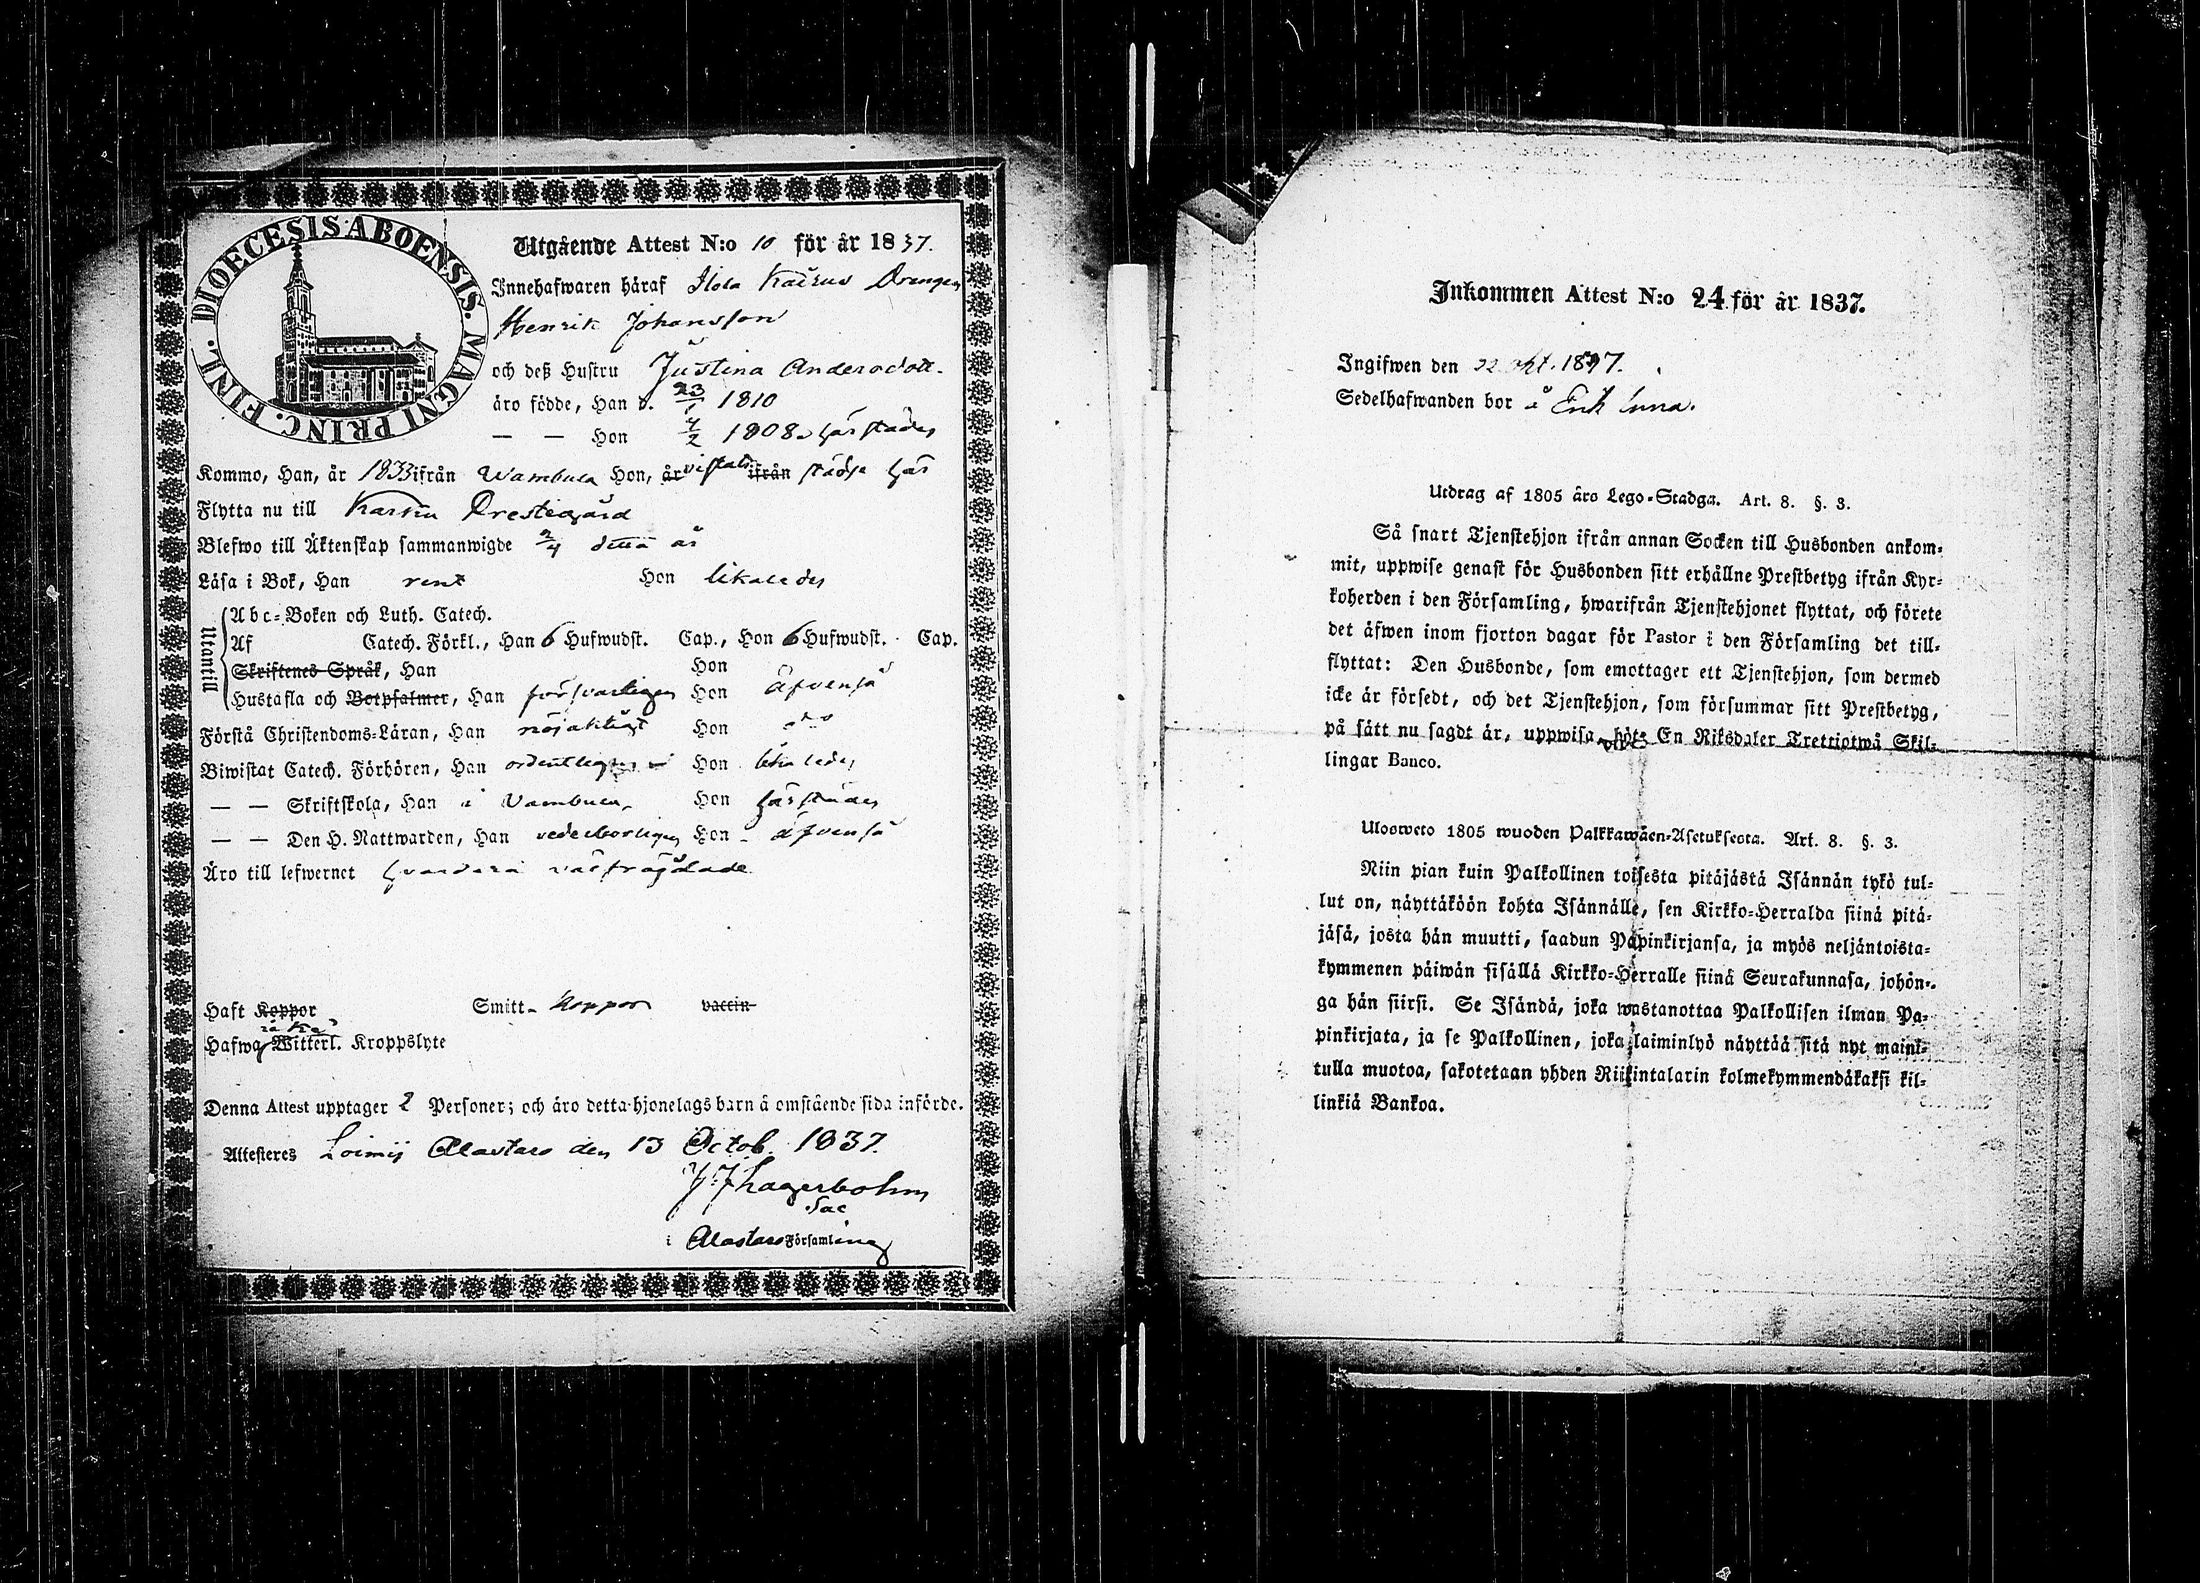 DIOECESIS ABOENSIS. MAGNI PRINC. FINL.
Utgående Attest N:o 10 för år 1837.
Innehafwaren häraf Drengen
Henrik Johansson
och deß Hustru Justina Andersdott.
äro födde, Han d. 23/1 1810
— — Hon 4/2 1808 härstädes
Kommo, Han, år 1833 ifrån Wambula Hon, år vistats ifrån städse här
Flytta nu till Karkku Prestegård
Blefwo till Äktenskap sammanwigde 2/4 detta år
Läsa i Bok, Han rent Hon likaledes
Utantill
Abc-Boken och Luth. Catech.
Af Catech. Förkl., Han 6 Hufwudst. Cap., Hon 6 Hufwudst. Cap.
Skriftenes Språk, Han Hon
Hustafla och Botpsalmer, Han försvarligen Hon äfvenså
Förstå Christendoms-Läran, Han nöjaktigt Hon d:o
Biwistat Catech. Förhören, Han ordentligen Hon likaledes
— — Skriftskola, Han i Vambula, Hon härstädes
— — Den H. Nattwarden, Han vederborligen Hon äfvenså
Äro till lefwernet hvardera välfrägdade
Haft Koppor Smitt- koppor vaccin
Hafwa Witterl. Kroppslyte
Denna Attest upptager 2 Personer; och äro detta hjonelags barn å omstående sida införde.
Attesteres Loimij Alastaro den 13 Octob. 1837.
Lagerbohm
Sac
i Alastaro Församling
Inkommen Attest N:o 24 för år 1837.
Ingifwen den 22 okt. 1837.
Sedelhafwanden bor å Erik
Utdrag af 1805 års Lego-Stadga. Art. 8. §. 3.
Så snart Tjenstehjon ifrån annan Socken till Husbonden ankom-
mit, uppwise genast för Husbonden sitt erhållne Prestbetyg ifrån Kyr-
koherden i den Församling, hwarifrån Tjenstehjonet flyttat, och förete
det äfwen inom fjorton dagar för Pastor i den Församling det till-
flyttat: Den Husbonde, som emottager ett Tjenstehjon, som dermed
icke är försedt, och det Tjenstehjon, som försummar sitt Prestbetyg,
på sätt nu sagdt är, uppwisa, böte En Riksdaler Trettiotwå Skil-
lingar Banco.
Uloswето 1805 wuoden Palkkawäen-Asetuksesta. Art. 8. §. 3.
Niin pian kuin Palkollinen toisesta pitäjästä Isännän tykö tul-
lut on, näyttäköön kohta Isännälle, sen Kirkko-Herralda siinä pitä-
jäsä, josta hän muutti, saadun Papinkirjansa, ja myös neljäntoista-
kymmenen päiwän sisällä Kirkko-Herralle siinä Seurakunnasa, johön-
ga hän siirsi. Se Isändä, joka wastanottaa Palkollisen ilman Pa-
pinkirjata, ja se Palkollinen, joka laiminlyö näyttää sitä nyt mainit-
tulla muotoa, sakotetaan yhden Riikintalarin kolmekymmendäkaksi kil-
linkiä Bankoa.